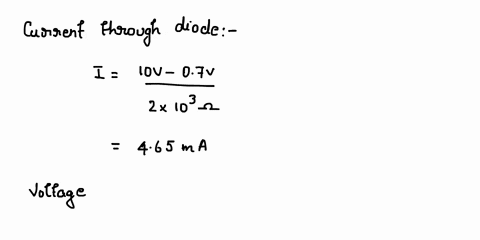 Current through diode:-
I = 10V - 0.7V / 2 x 10³ Ω
= 4.65 mA
Voltage